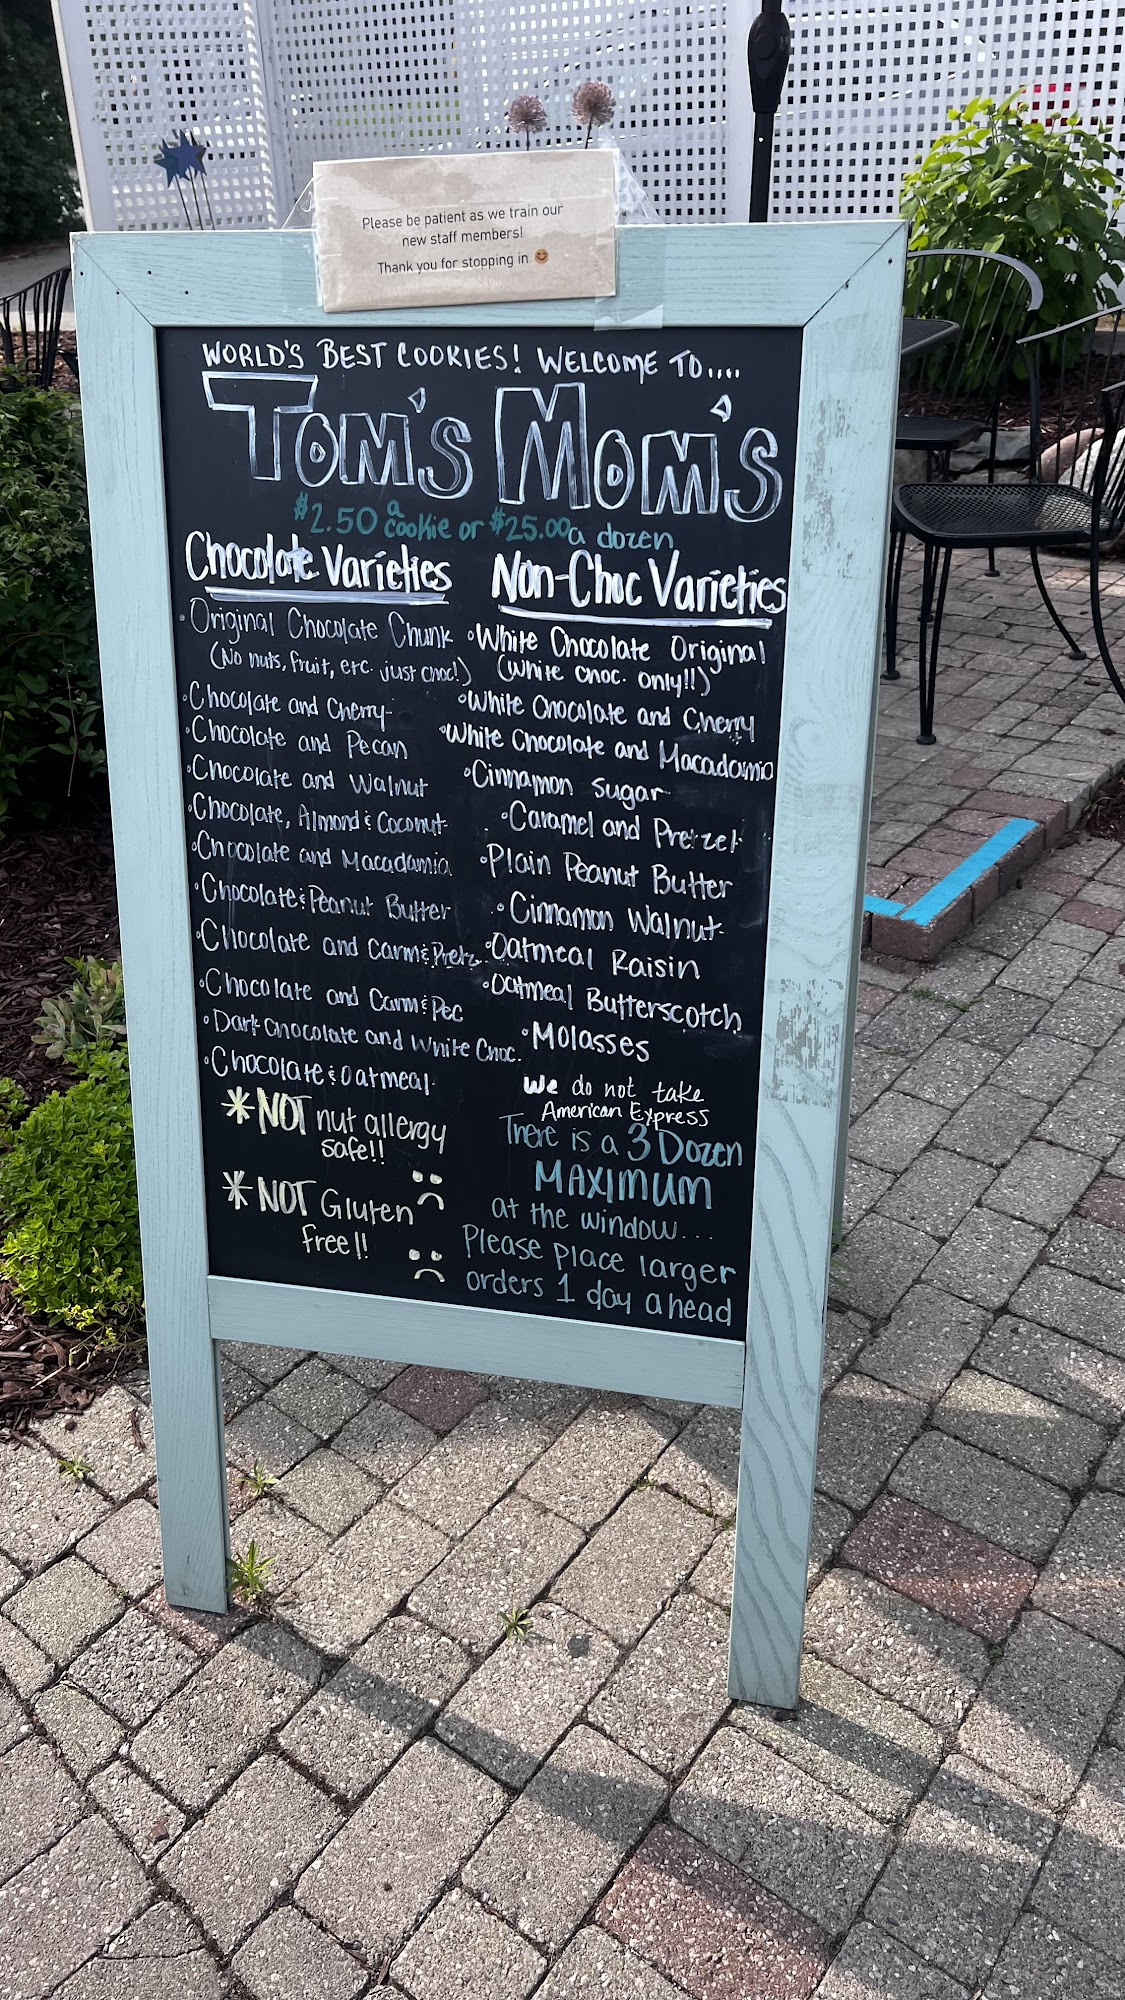 Please be patient as we train our
new staff members!
Thank you for stopping in 😊
WORLD'S BEST COOKIES! WELCOME TO....
TOM'S MOM'S
$2.50 a cookie or $25.00 a dozen
Chocolate Varieties
• Original Chocolate Chunk
(No nuts, fruit, etc. just choc!)
• Chocolate and Cherry
• Chocolate and Pecan
• Chocolate and Walnut
• Chocolate, Almond & Coconut
• Chocolate and Macadamia
• Chocolate & Peanut Butter
• Chocolate and Carm & Pretz
• Chocolate and Carm & Pec
• Dark Chocolate and White Choc.
• Chocolate & Oatmeal
* NOT nut allergy
safe!!
* NOT Gluten
free!!
Non-Choc Varieties
• White Chocolate Original
(White choc. only!!)
• White Chocolate and Cherry
• White Chocolate and Macadamia
• Cinnamon Sugar
• Caramel and Pretzel
• Plain Peanut Butter
• Cinnamon Walnut
• Oatmeal Raisin
• Oatmeal Butterscotch
• Molasses
We do not take
American Express
There is a 3 Dozen
MAXIMUM
at the window...
Please place larger
orders 1 day ahead